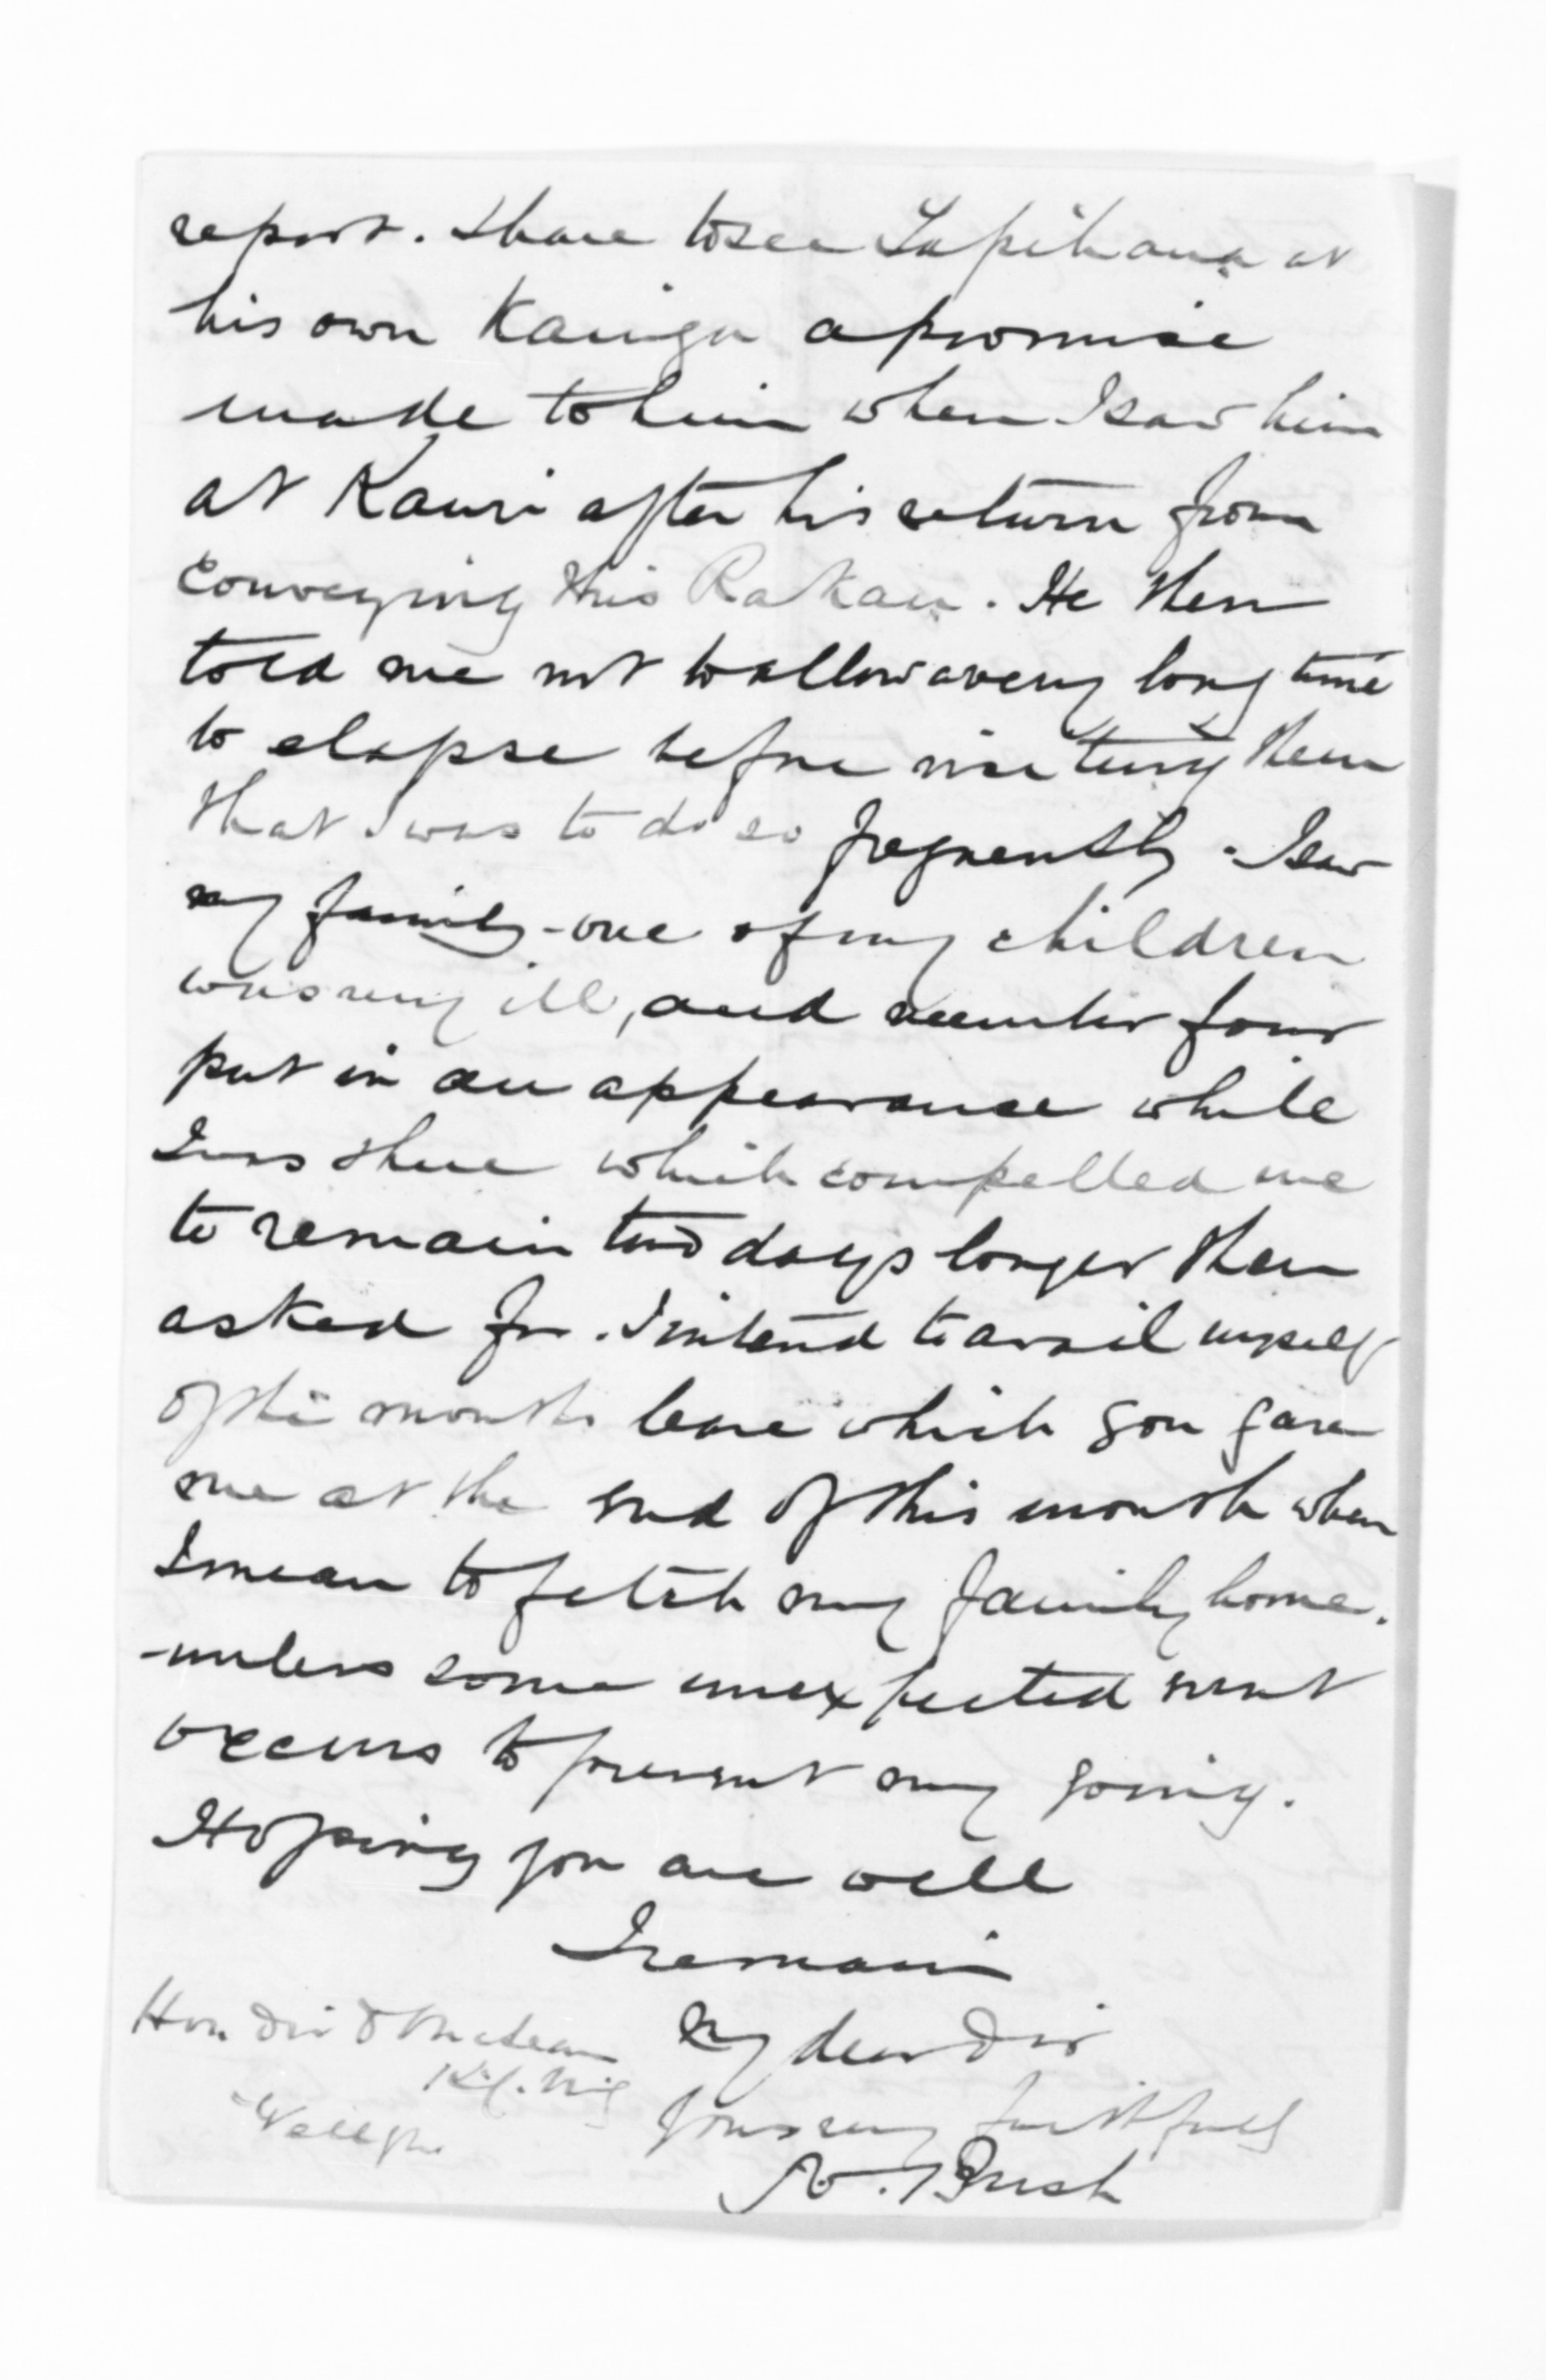 report. I have to see Tapihana at
his own Kainga a promise
made to him when I saw him
at Kauri after his return from
conveying this Rakau. He then
told me not to allow a very long time
to elapse before visiting them
that I was to do so frequently. I saw
my family - one of my children
was very ill, and number four
put in an appearance while
I was there which compelled me
to remain two days longer than
asked for. I intend to avail myself
of the months leave which you gave
me at the end of this month when
I mean to fetch my family home.
- unless some unexpected event
occurs to prevent my going.
Hoping you are well
I remain
My dear Sir
Yours very faithfully
Bush
Hon Sir D McLean
Wellgtn